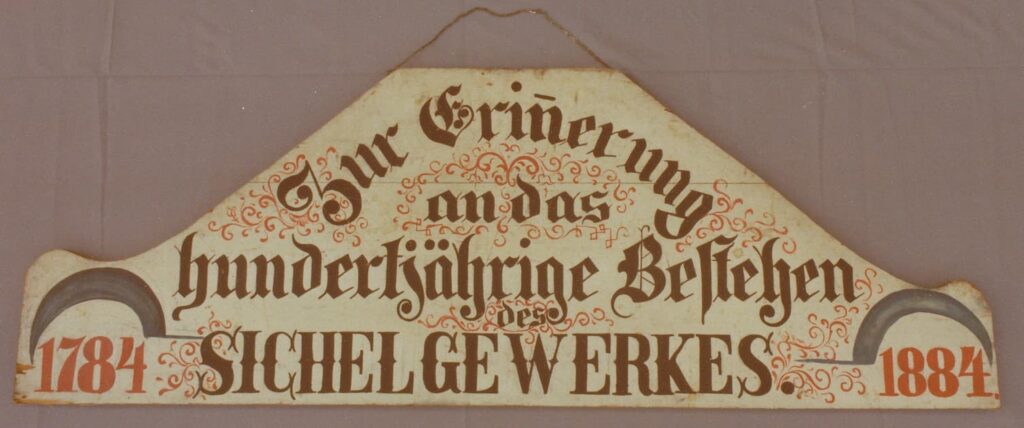 Zur Erin̄erung
an das
hundertjährige Beſtehen
des
1784 SICHELGEWERKES. 1884.